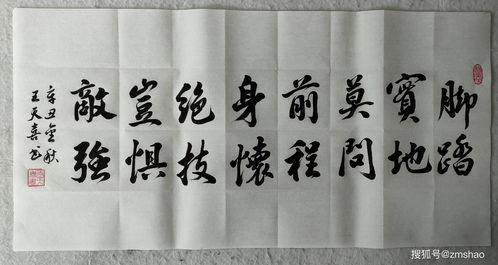 脚踏
實地
莫問
前程
身懷
絶技
豈懼
敵強
辛丑金秋
王天喜书
搜狐号@zmshao